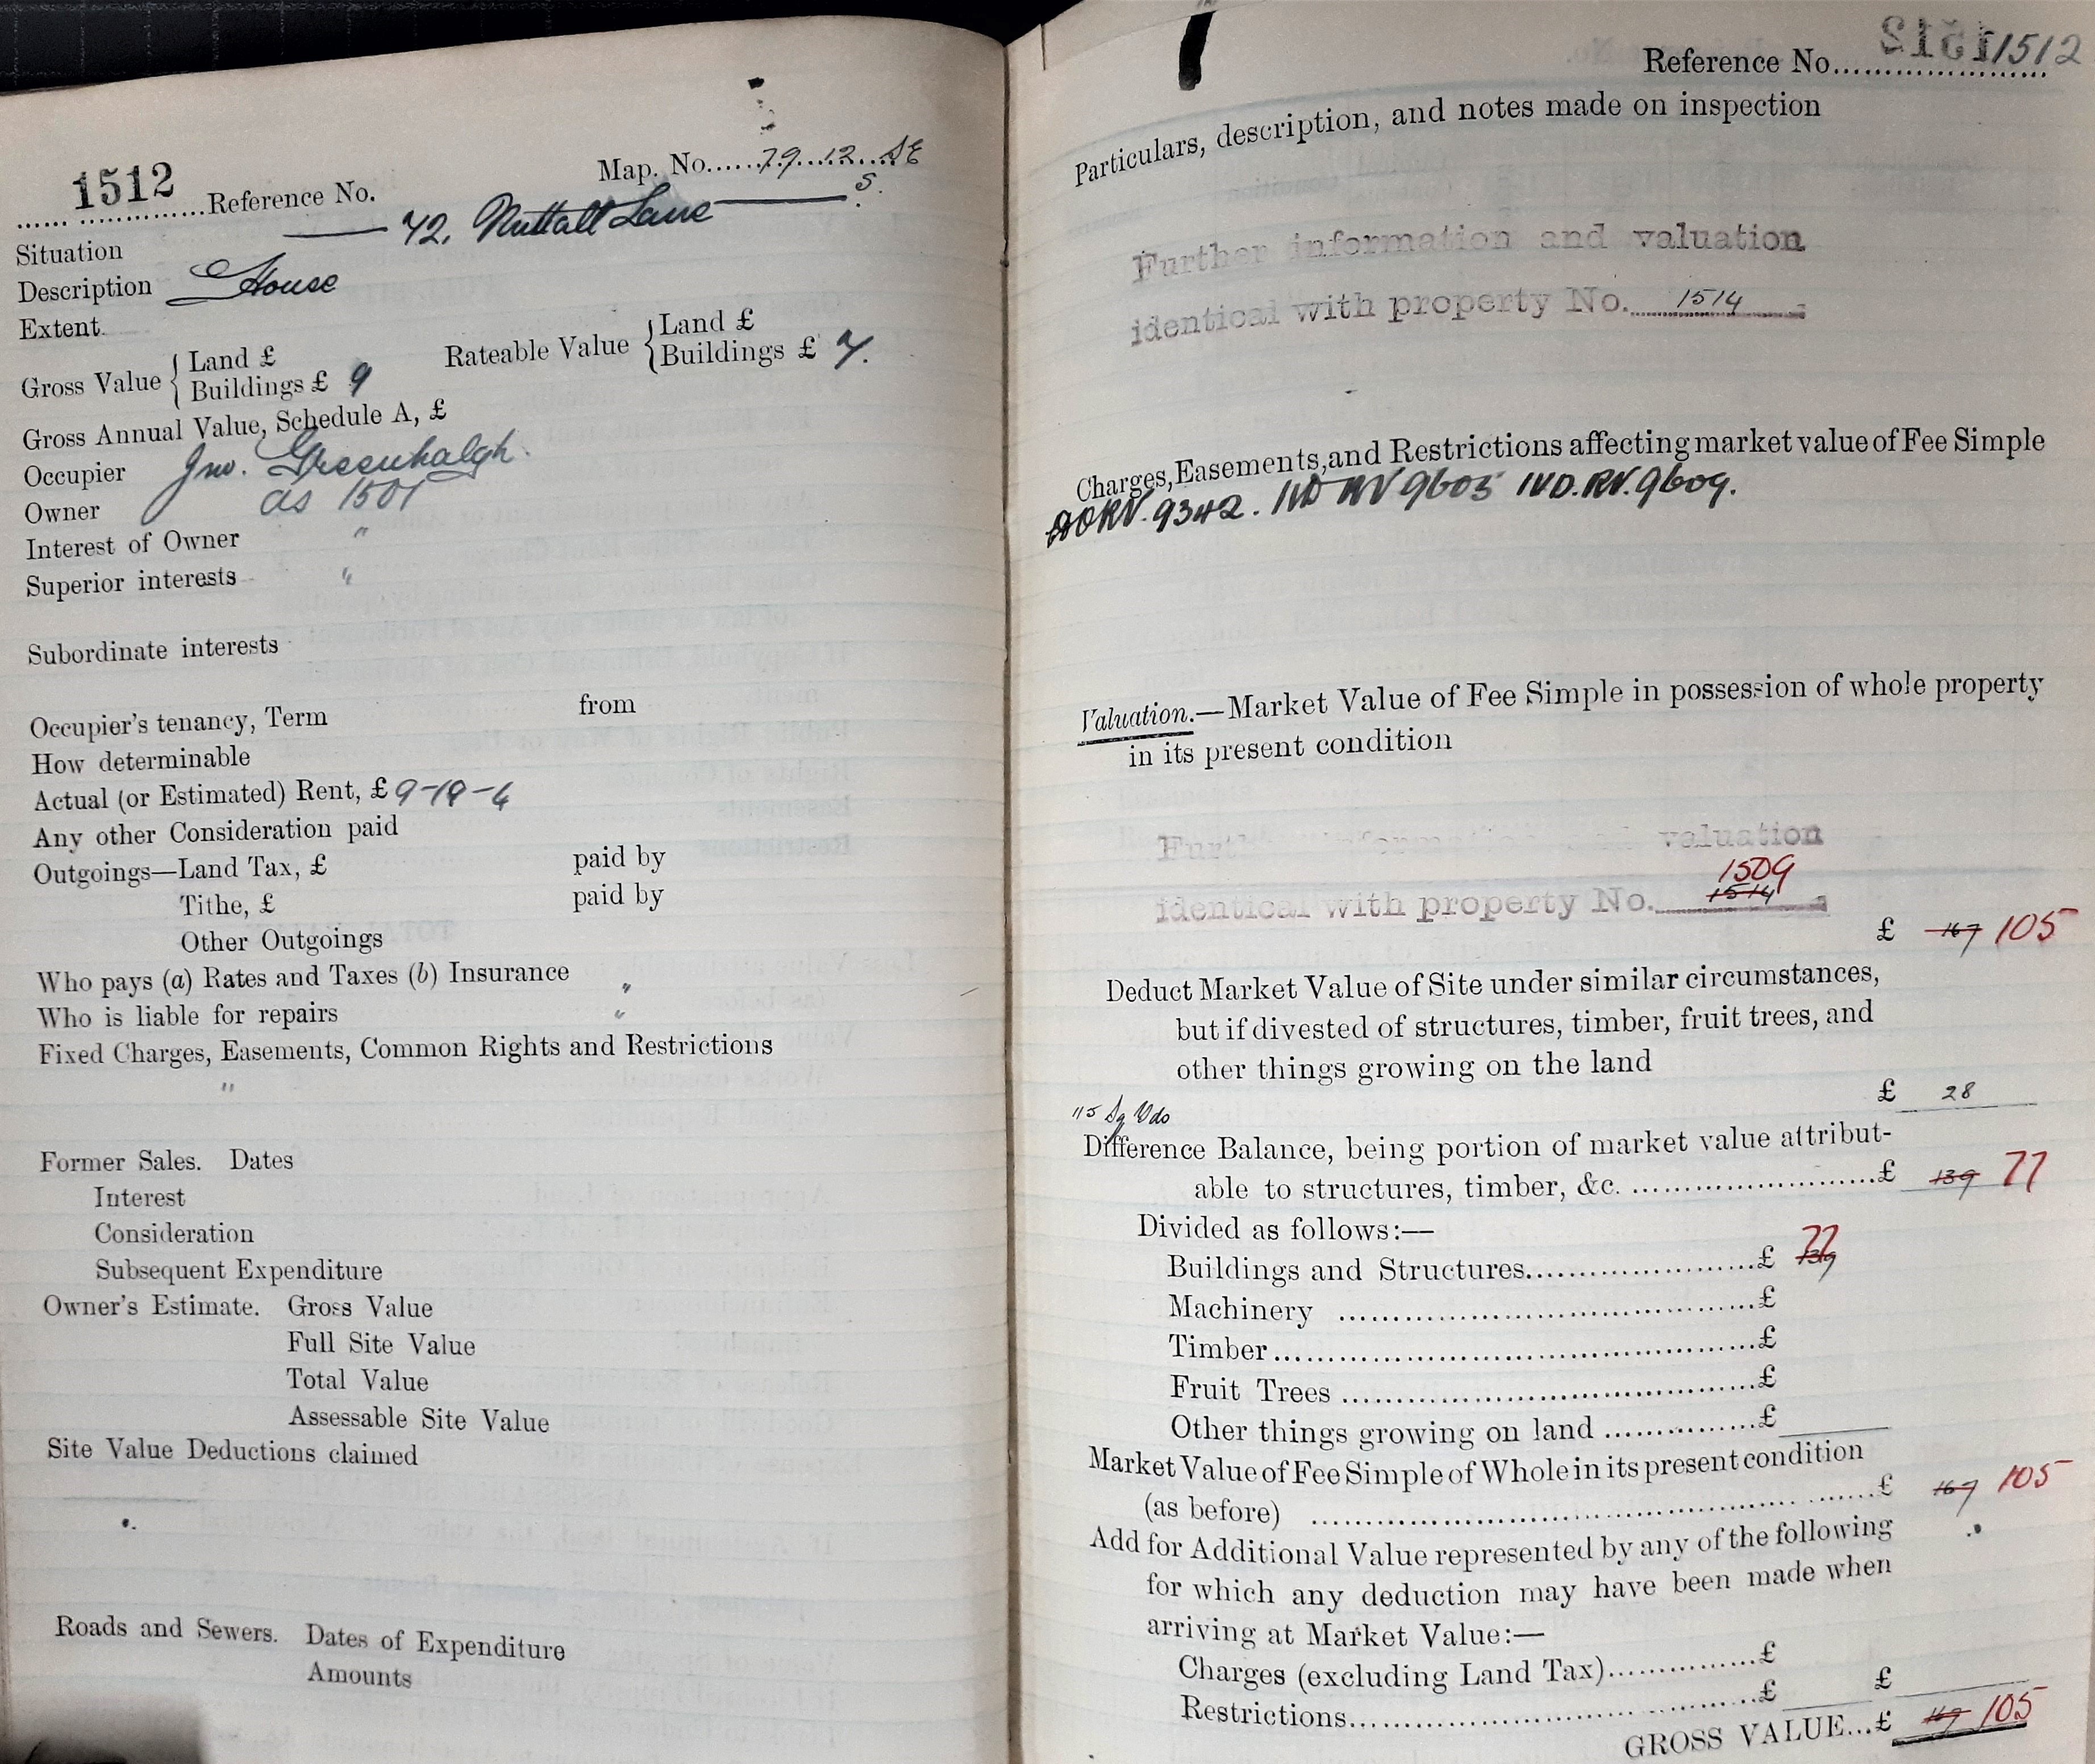 1512 Reference No. Map. No. 79.12.SE
Situation 72, Nuttall Lane S.
Description House
Extent
Gross Value { Land £
Buildings £ 9
Rateable Value { Land £
Buildings £ 7.
Gross Annual Value, Schedule A, £
Occupier Jno. Greenhalgh.
Owner as 1501
Interest of Owner "
Superior interests "
Subordinate interests
Occupier's tenancy, Term from
How determinable
Actual (or Estimated) Rent, £ 9-19-4
Any other Consideration paid
Outgoings—Land Tax, £ paid by
Tithe, £ paid by
Other Outgoings
Who pays (a) Rates and Taxes (b) Insurance "
Who is liable for repairs "
Fixed Charges, Easements, Common Rights and Restrictions
"
Former Sales. Dates
Interest
Consideration
Subsequent Expenditure
Owner's Estimate. Gross Value
Full Site Value
Total Value
Assessable Site Value
Site Value Deductions claimed
Roads and Sewers. Dates of Expenditure
Amounts
Reference No. 1512
Particulars, description, and notes made on inspection
Further information and valuation
identical with property No. 1514
Charges, Easements, and Restrictions affecting market value of Fee Simple
RV. 9342. IVD RV 9603 IVD.RV. 9609.
Valuation.—Market Value of Fee Simple in possession of whole property
in its present condition
Further information and valuation
1509
identical with property No. 1514
£ 167 105
Deduct Market Value of Site under similar circumstances,
but if divested of structures, timber, fruit trees, and
other things growing on the land
£ 28
115 Sq Yds
Difference Balance, being portion of market value attribut-
able to structures, timber, &c. £ 139 77
Divided as follows:—
Buildings and Structures £ 139 77
Machinery £
Timber £
Fruit Trees £
Other things growing on land £
Market Value of Fee Simple of Whole in its present condition
(as before) £ 167 105
Add for Additional Value represented by any of the following
for which any deduction may have been made when
arriving at Market Value:—
Charges (excluding Land Tax) £
Restrictions £ £
GROSS VALUE...£ 167 105